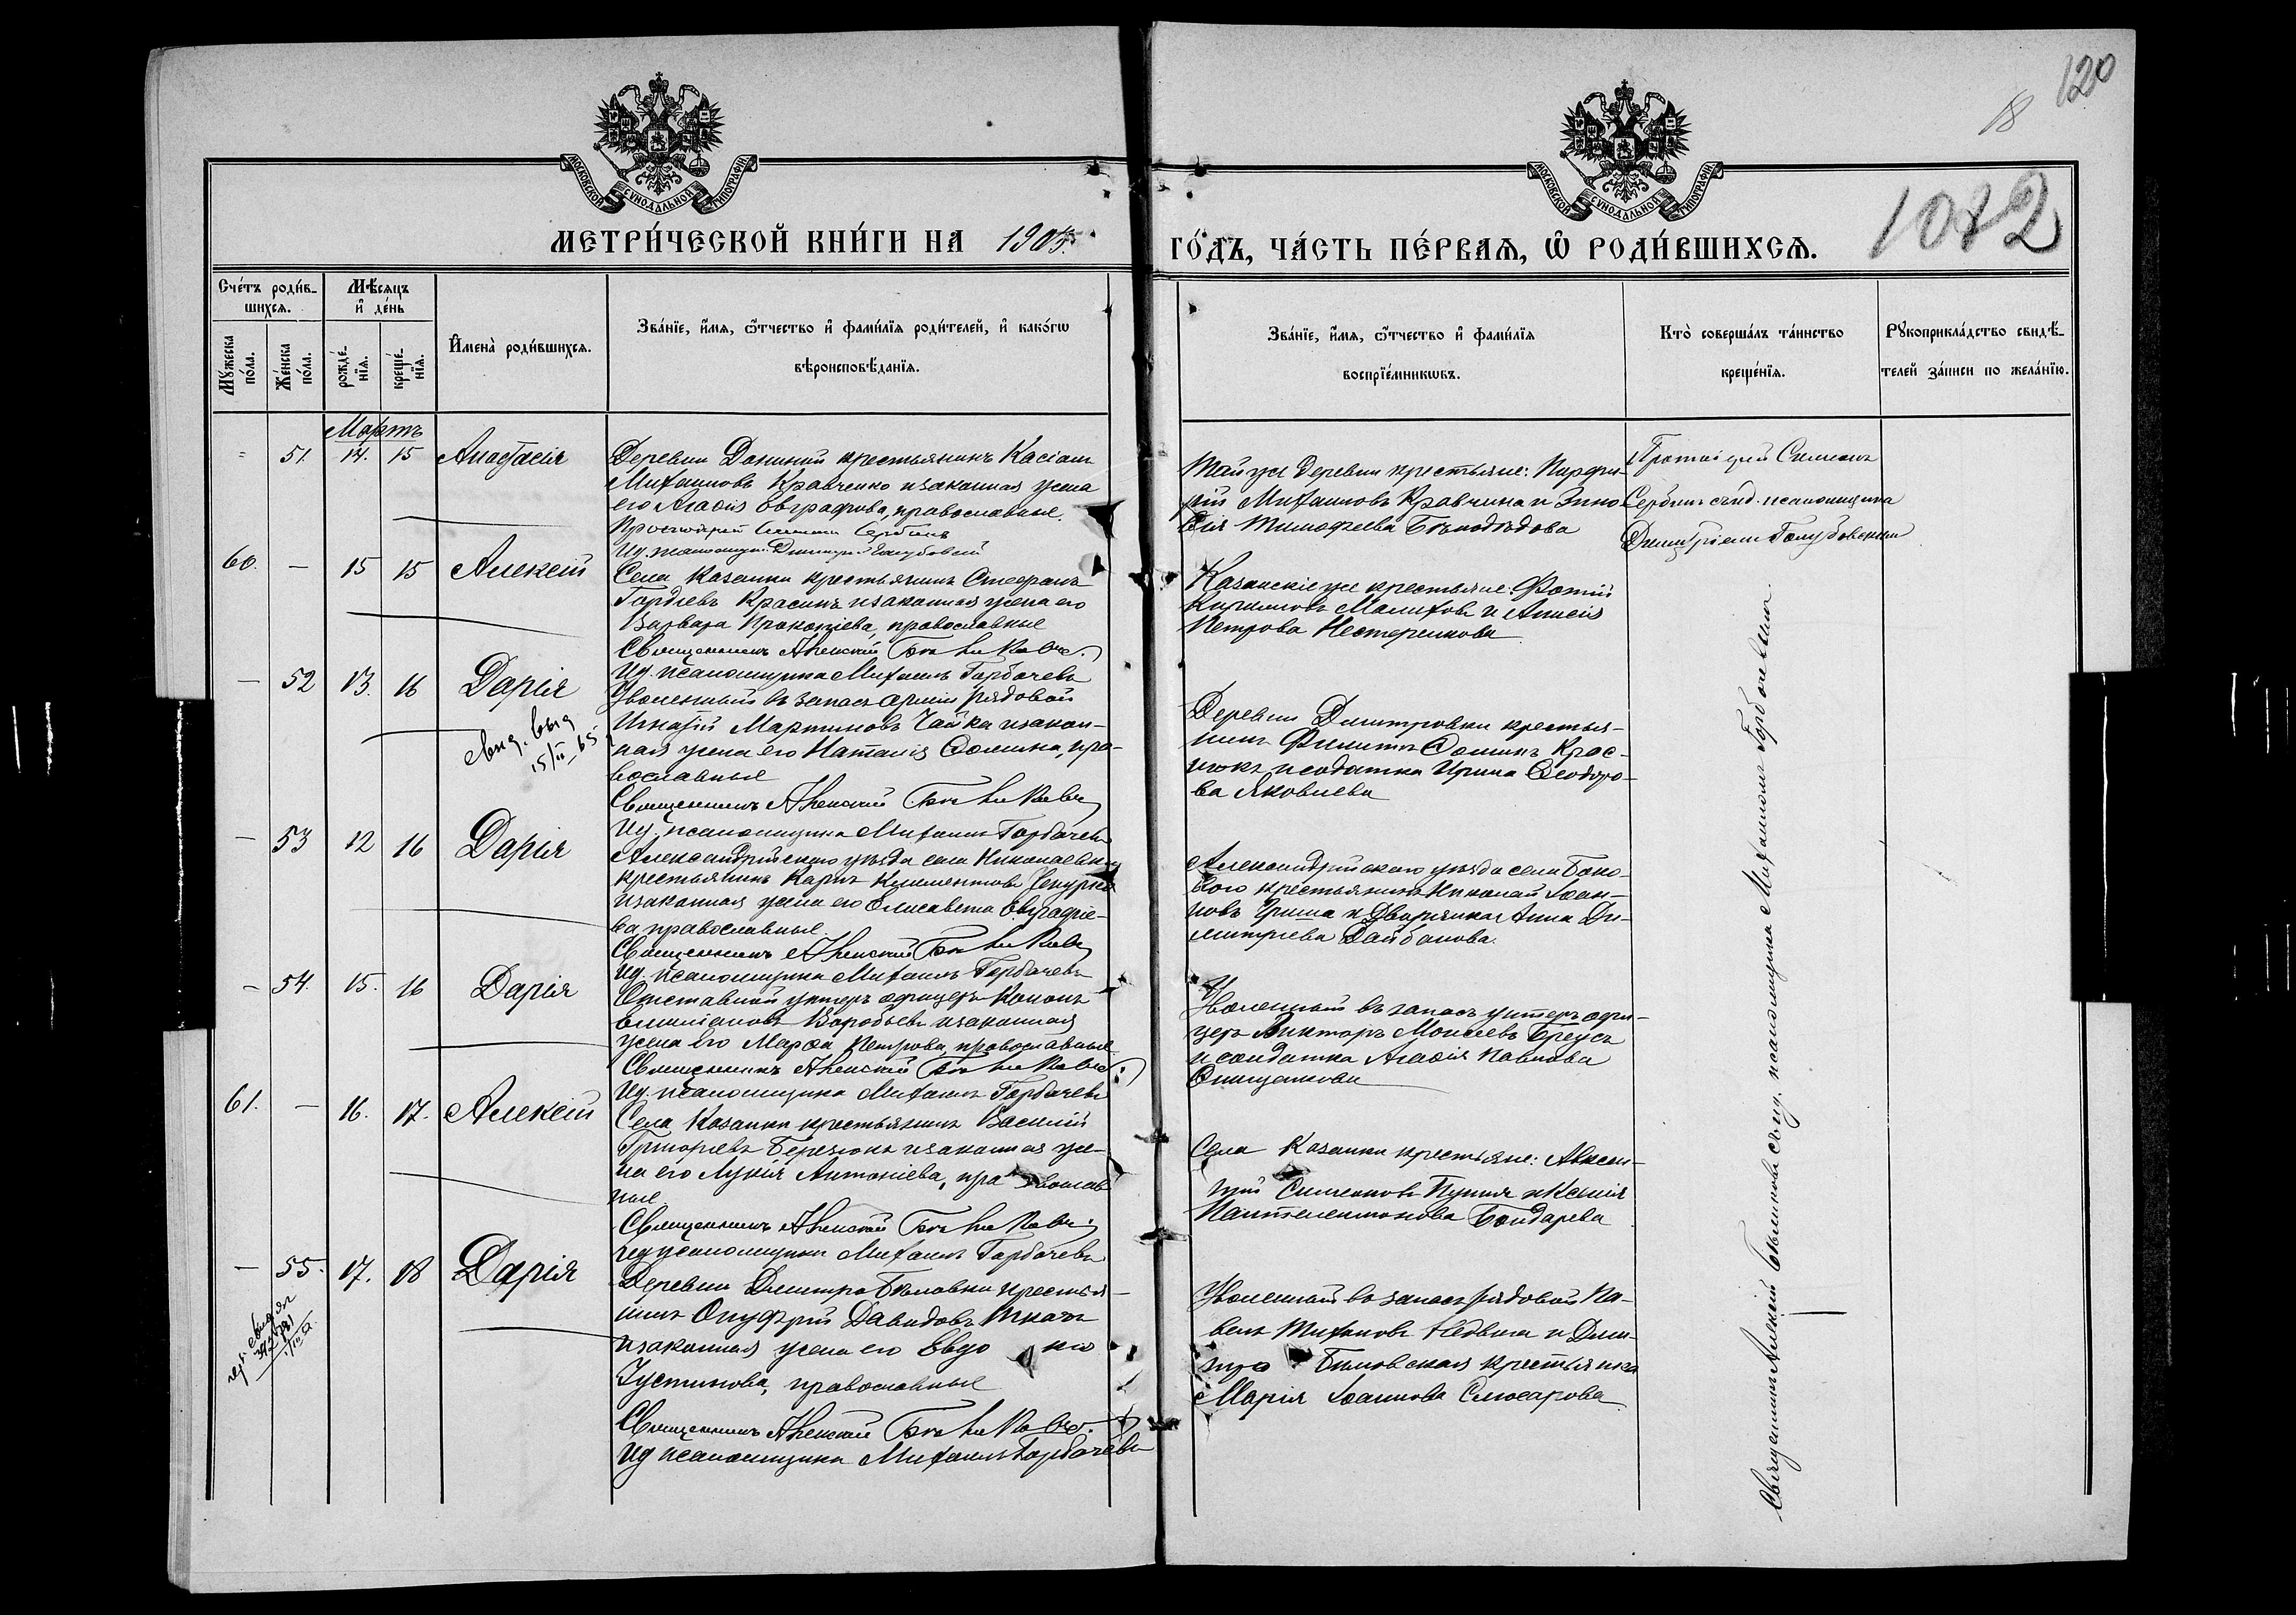 120
18
1082
МОСКОВСКОЙ СѴНОДАЛЬНОЙ ТИПОГРАФІИ
МОСКОВСКОЙ СѴНОДАЛЬНОЙ ТИПОГРАФІИ
МЕТРИ́ЧЕСКОЙ КНИ́ГИ НА 1905
ГО́ДЪ, ЧА́СТЬ ПЕ́РВАѦ, Ѡ҆ РОДИ́ВШИХСѦ.
Сче́тъ роди́в-
шихсѧ.
Мѣ́сѧцъ
и҆ де́нь
Мꙋ́жеска
по́ла.
Же́нска
по́ла.
рожде́-
нїѧ.
креще́-
нїѧ.
И҆мена̀ роди́вшихсѧ.
Зва́нїе, и҆́мѧ, ѻ҆́тчество и҆ фами́лїѧ роди́телей, и҆ како́гѡ
вѣроисповѣ́данїѧ.
Зва́нїе, и҆́мѧ, ѻ҆́тчество и҆ фами́лїѧ
воспрїе́мникѡвъ.
Кто̀ соверша́лъ та́инство
креще́нїѧ.
Рꙋкоприкла́дство свидѣ́-
телей за́писи по жела́нїю.
Мартъ
51. 14. 15 Анастасія
Деревни крестьянинъ Касіанъ
Михаиловъ Кравченко и законная жена
его Агаѳія Евграфова, православные.
Протоіерей Симеонъ Сербинъ
Ид. псаломщ. Димитрій Голубовскій
Той же деревни крестьяне: Порфи-
рій Михаиловъ Кравчина и
Тимофеева Бѣлодѣдова
Протоіерей Симеонъ
Сербинъ съ и.д. псаломщика
Димитріемъ Голубовскимъ
60. – 15 15 Алексій
Села Казанки крестьянинъ Стефанъ
Гордіевъ Красинъ и законная жена его
Варвара Прокопіева, православные
Священникъ Алексій
Ид. псаломщика Михаилъ Горбачевъ
Казанскіе же крестьяне: Фотій
Кирилловъ Малихов и Анисія
Петрова Нестеренкова
– 52 13. 16 Дарія
свид. выд
15/II 65
Уволенный въ запасъ арміи рядовой
Игнатій Мартиновъ Чайка и закон-
ная жена его Наталія Ѳомина, пра-
вославные
Священникъ Алексій
Ид. псаломщика Михаилъ Горбачевъ
Деревни Дмитровки крестья-
нинъ Филиппъ Ѳоминъ Крас-
нюкъ и солдатка Ирина Ѳеодоро-
ва Яковлева
– 53 12 16 Дарія
Александрійскаго уѣзда села Николаевки
крестьянинъ Карпъ Климентовъ
и законная жена его Елисавета Евграфіе-
ва, православные.
Священникъ Алексій
Ид. псаломщика Михаилъ Горбачевъ
Александрійскаго уѣзда села Боко-
вого крестьянинъ Николай Іоан-
новъ Гриша и Дворянка Анна Ди-
митріева Дайбанова.
– 54. 15. 16 Дарія
Отставной унтеръ офицеръ Кононъ
Емиліановъ Воробьевъ и законная
жена его Марѳа Петрова, православные
Священникъ Алексій
Ид. псаломщика Михаилъ Горбачевъ
Уволенный въ запасъ унтеръ офи-
церъ Викторъ Моисеевъ Бреусъ
и солдатка Агаѳія Павлова
Онищенкова
61. – 16. 17. Алексій
Села Казанки крестьянинъ Василій
Григоріевъ Березюкъ и законная же-
на его Лукія Антоніева, православ
ные
Священникъ Алексій
Ид псаломщика Михаилъ Горбачевъ
Села Казанки крестьяне: Авксен-
тій Симеоновъ и Ксенія
Пантелеимонова Бондарева
– 55. 17. 18 Дарія
Деревни Димитро Бѣловки крестья-
нинъ Онуфрій Давидовъ Ткачъ
и законная жена его Евдо кія
Іустинова, православные
Священникъ Алексій
Ид псаломщика Михаилъ Горбачевъ
Уволенный въ запасъ рядовой Па-
велъ и Дми-
тро Бѣловская крестьянка
Марія Іоаннова Слюсарова
Священникъ Алексій съ ид. псаломщика Михаиломъ Горбачевымъ